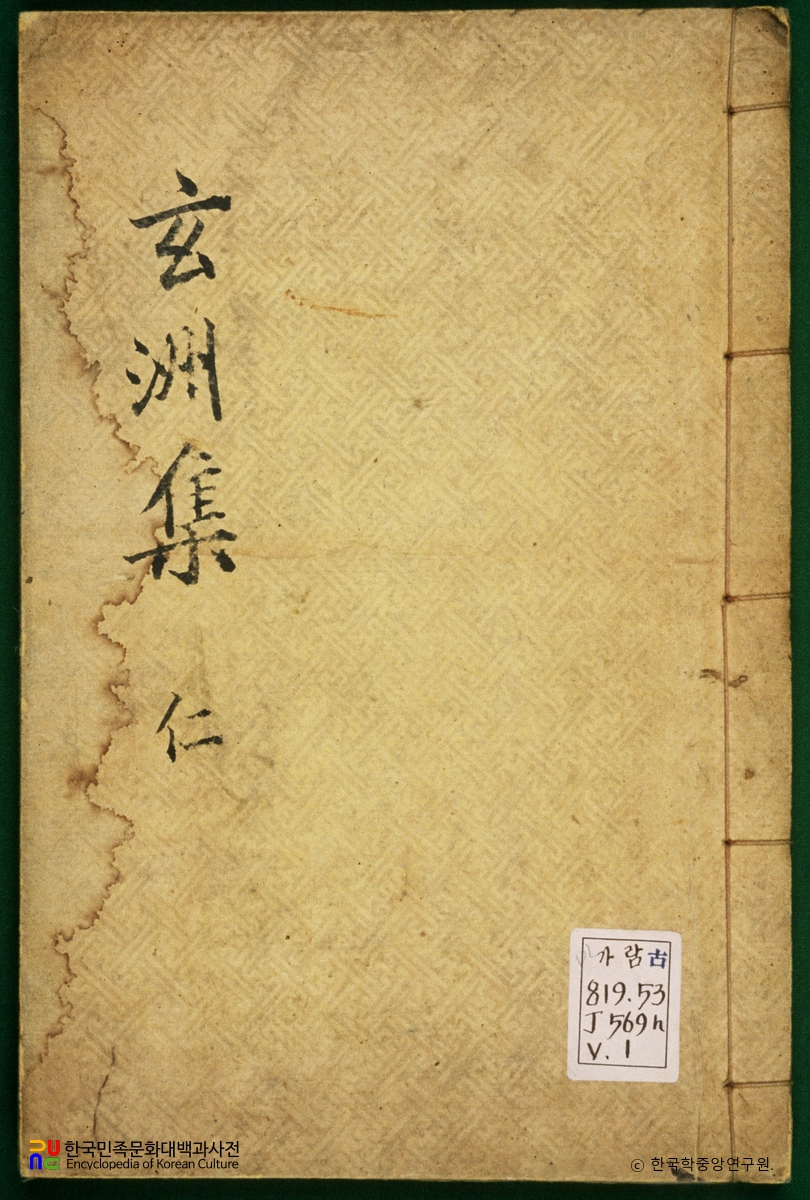 玄洲集 仁
가람古
819.53
J569h
V.1
한국민족문화대백과사전
Encyclopedia of Korean Culture
© 한국학중앙연구원.